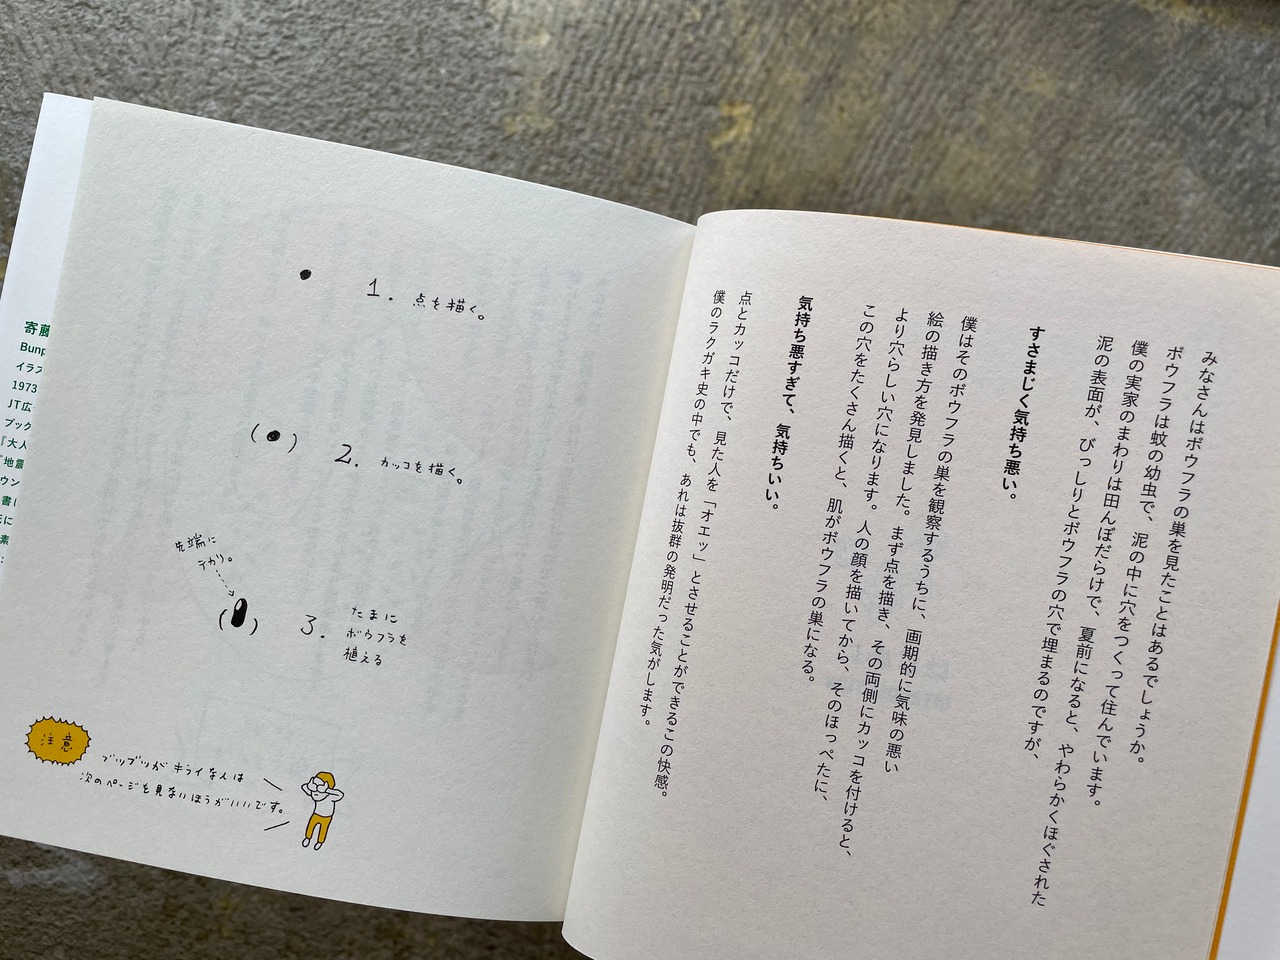 みなさんはボウフラの巣を見たことはあるでしょうか。
ボウフラは蚊の幼虫で、泥の中に穴をつくって住んでいます。
僕の実家のまわりは田んぼだらけで、夏前になると、やわらかくほぐされた
泥の表面が、びっしりとボウフラの穴で埋まるのですが、
すさまじく気持ち悪い。
僕はそのボウフラの巣を観察するうちに、画期的に気味の悪い
絵の描き方を発見しました。まず点を描き、その両側にカッコを付けると、
より穴らしい穴になります。人の顔を描いてから、そのほっぺたに、
この穴をたくさん描くと、肌がボウフラの巣になる。
気持ち悪すぎて、気持ちいい。
点とカッコだけで、見た人を「オエッ」とさせることができるこの快感。
僕のラクガキ史の中でも、あれは抜群の発明だった気がします。
1. 点を描く。
( ● ) 2. カッコを描く。
先端に
テカリ。
3. たまに
ボウフラを
植える
注意
ブツブツがキライな人は
次のページを見ないほうがいいです。
寄藤
Bunp
イラス
1973
JT広
ブック
『大人
『地震
ウン
書に
素